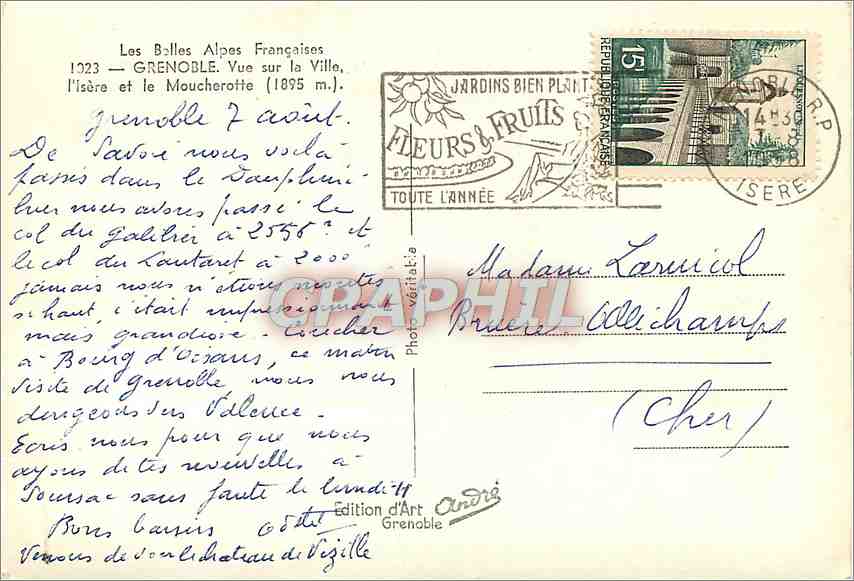 Les Belles Alpes Françaises
1023 — GRENOBLE. Vue sur la Ville,
l'Isère et le Moucherotte (1895 m.).
Grenoble 7 août.
De Savoie nous voilà
passés dans le Dauphiné
hier nous avons passé le
col du Galibier à 2556 m et
le col du Lautaret à 2000
jamais nous n'étions montés
si haut c'était impressionnant
mais grandiose. Coucher
à Bourg d'Oisans, ce matin
visite de Grenoble nous nous
dirigeons vers Valence.
Ecris nous pour que nous
ayons de tes nouvelles à
Soursac sans faute le lundi 11
Bons baisers
Venons de voir le chateau de Vizille
Photo véritable
Edition d'Art André
Grenoble
JARDINS BIEN PLANT
FLEURS & FRUITS
TOUTE L'ANNÉE
15F
RÉPUBLIQUE FRANÇAISE
NOBLE R.P
14 H 30
7 - 8
ISERE
Madame Larnicol
Bruère Allichamps
(Cher)
CRAPHIL